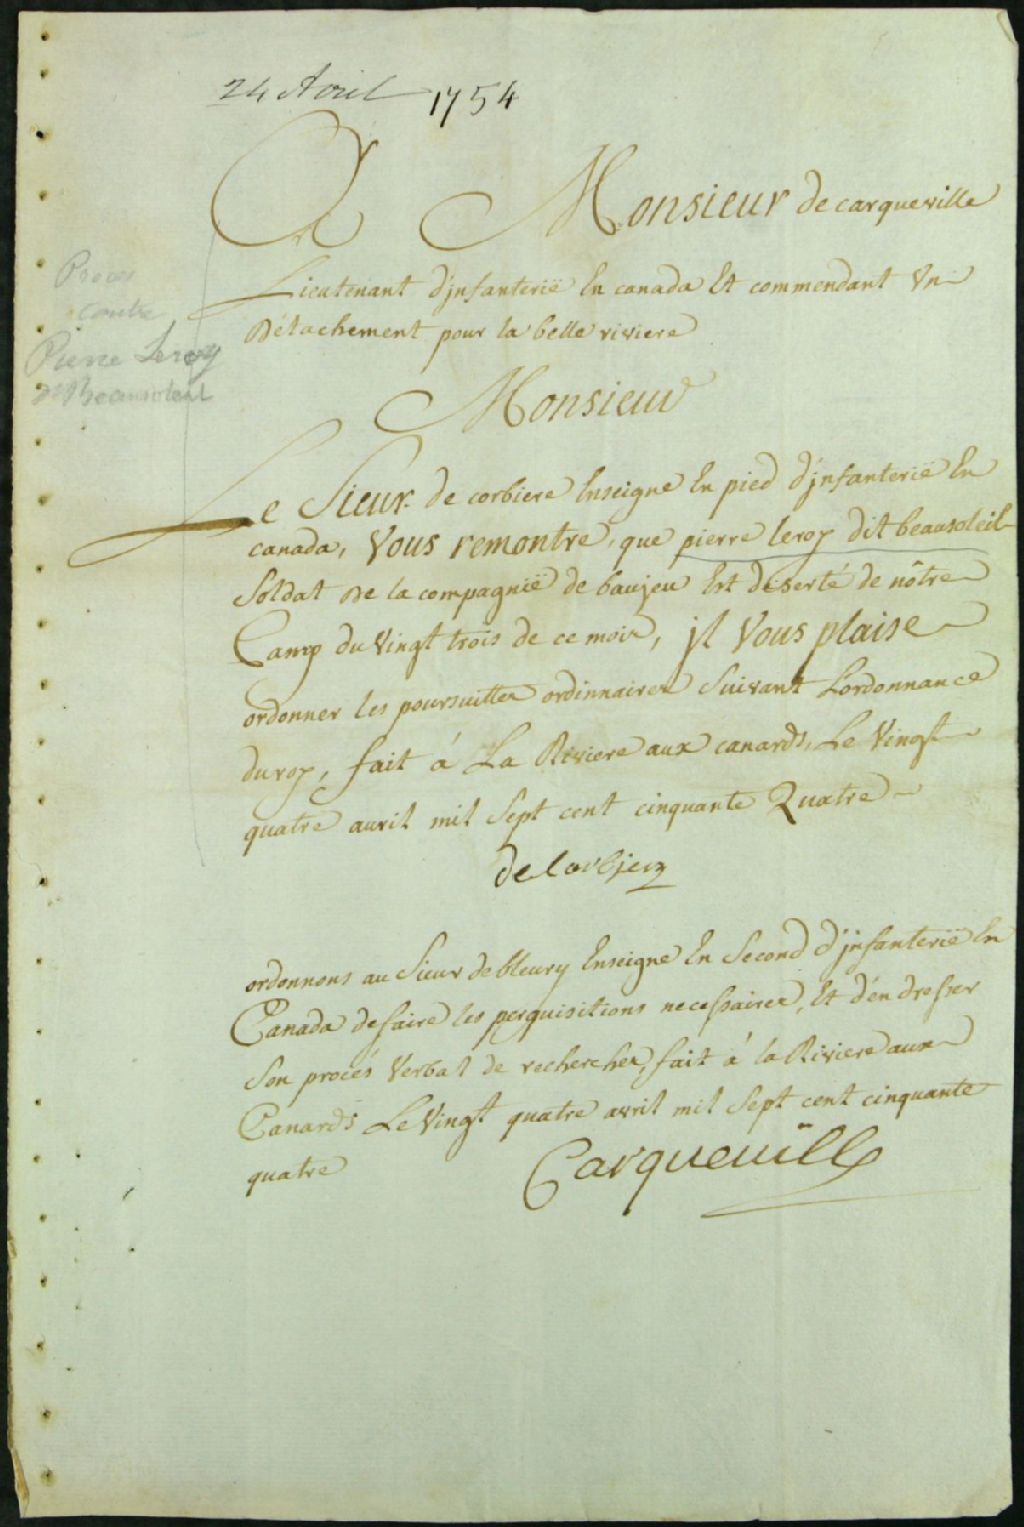 24 Avril 1754
A Monsieur de carqueville
Lieutenant d'jnfanterië En canada Et commendant Un
Détachement pour la belle riviere
Proces
contre
Pierre Leroy
dt Beausoleil
Monsieur
Le Sieur de corbiere Enseigne En pied d'jnfanterië En
canada, Vous remontre, que pierre leroy dit beausoleil
Soldat de la compagnië de baujeu Est déserté de nôtre
Camp du Vingt trois de ce mois, jl Vous plaise
ordonner les poursuittes ordinnaires Suivant L'ordonnance
du roy, fait á La Riviere aux canards, Le Vingt
quatre avril mil Sept cent cinquante Quatre
de Corbjere
ordonnons au Sieur de bleury Enseigne En Second d'jnfanterië En
Canada de faire les perquisitions necessaires, Et d'en dresser
Son procés Verbal de recherches, fait á la Riviere aux
Canards Le Vingt quatre avril mil Sept cent cinquante
quatre Carqueuille